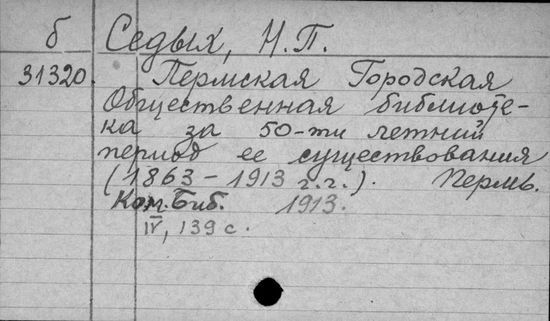 б Седых, Н.П.
31320. Пермская Городская
Общественная библиоте-
ка за 50-ти летний
период ее существования
(1863 - 1913 г.г.). Пермь.
Ком. Биб. 1913.
IV, 139 с.